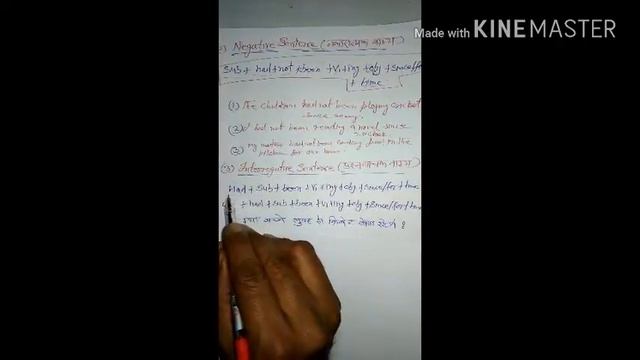 Made with KINEMASTER
Negative Sentence (नकारात्मक वाक्य)
Sub + had + not + been + V1 + ing + obj + since/for
+ time
(1) The children had not been playing cricket
since
(2) I had not been reading a novel since
(3) My mother had not been cooking food in the
kitchen for an hour.
(3) Interrogative Sentence (प्रश्नवाचक वाक्य)
Had + sub + been + V1 + ing + obj + since/for + time
+ had + sub + been + V1 + ing + obj + since/for + time
बच्चे सुबह से क्रिकेट ?